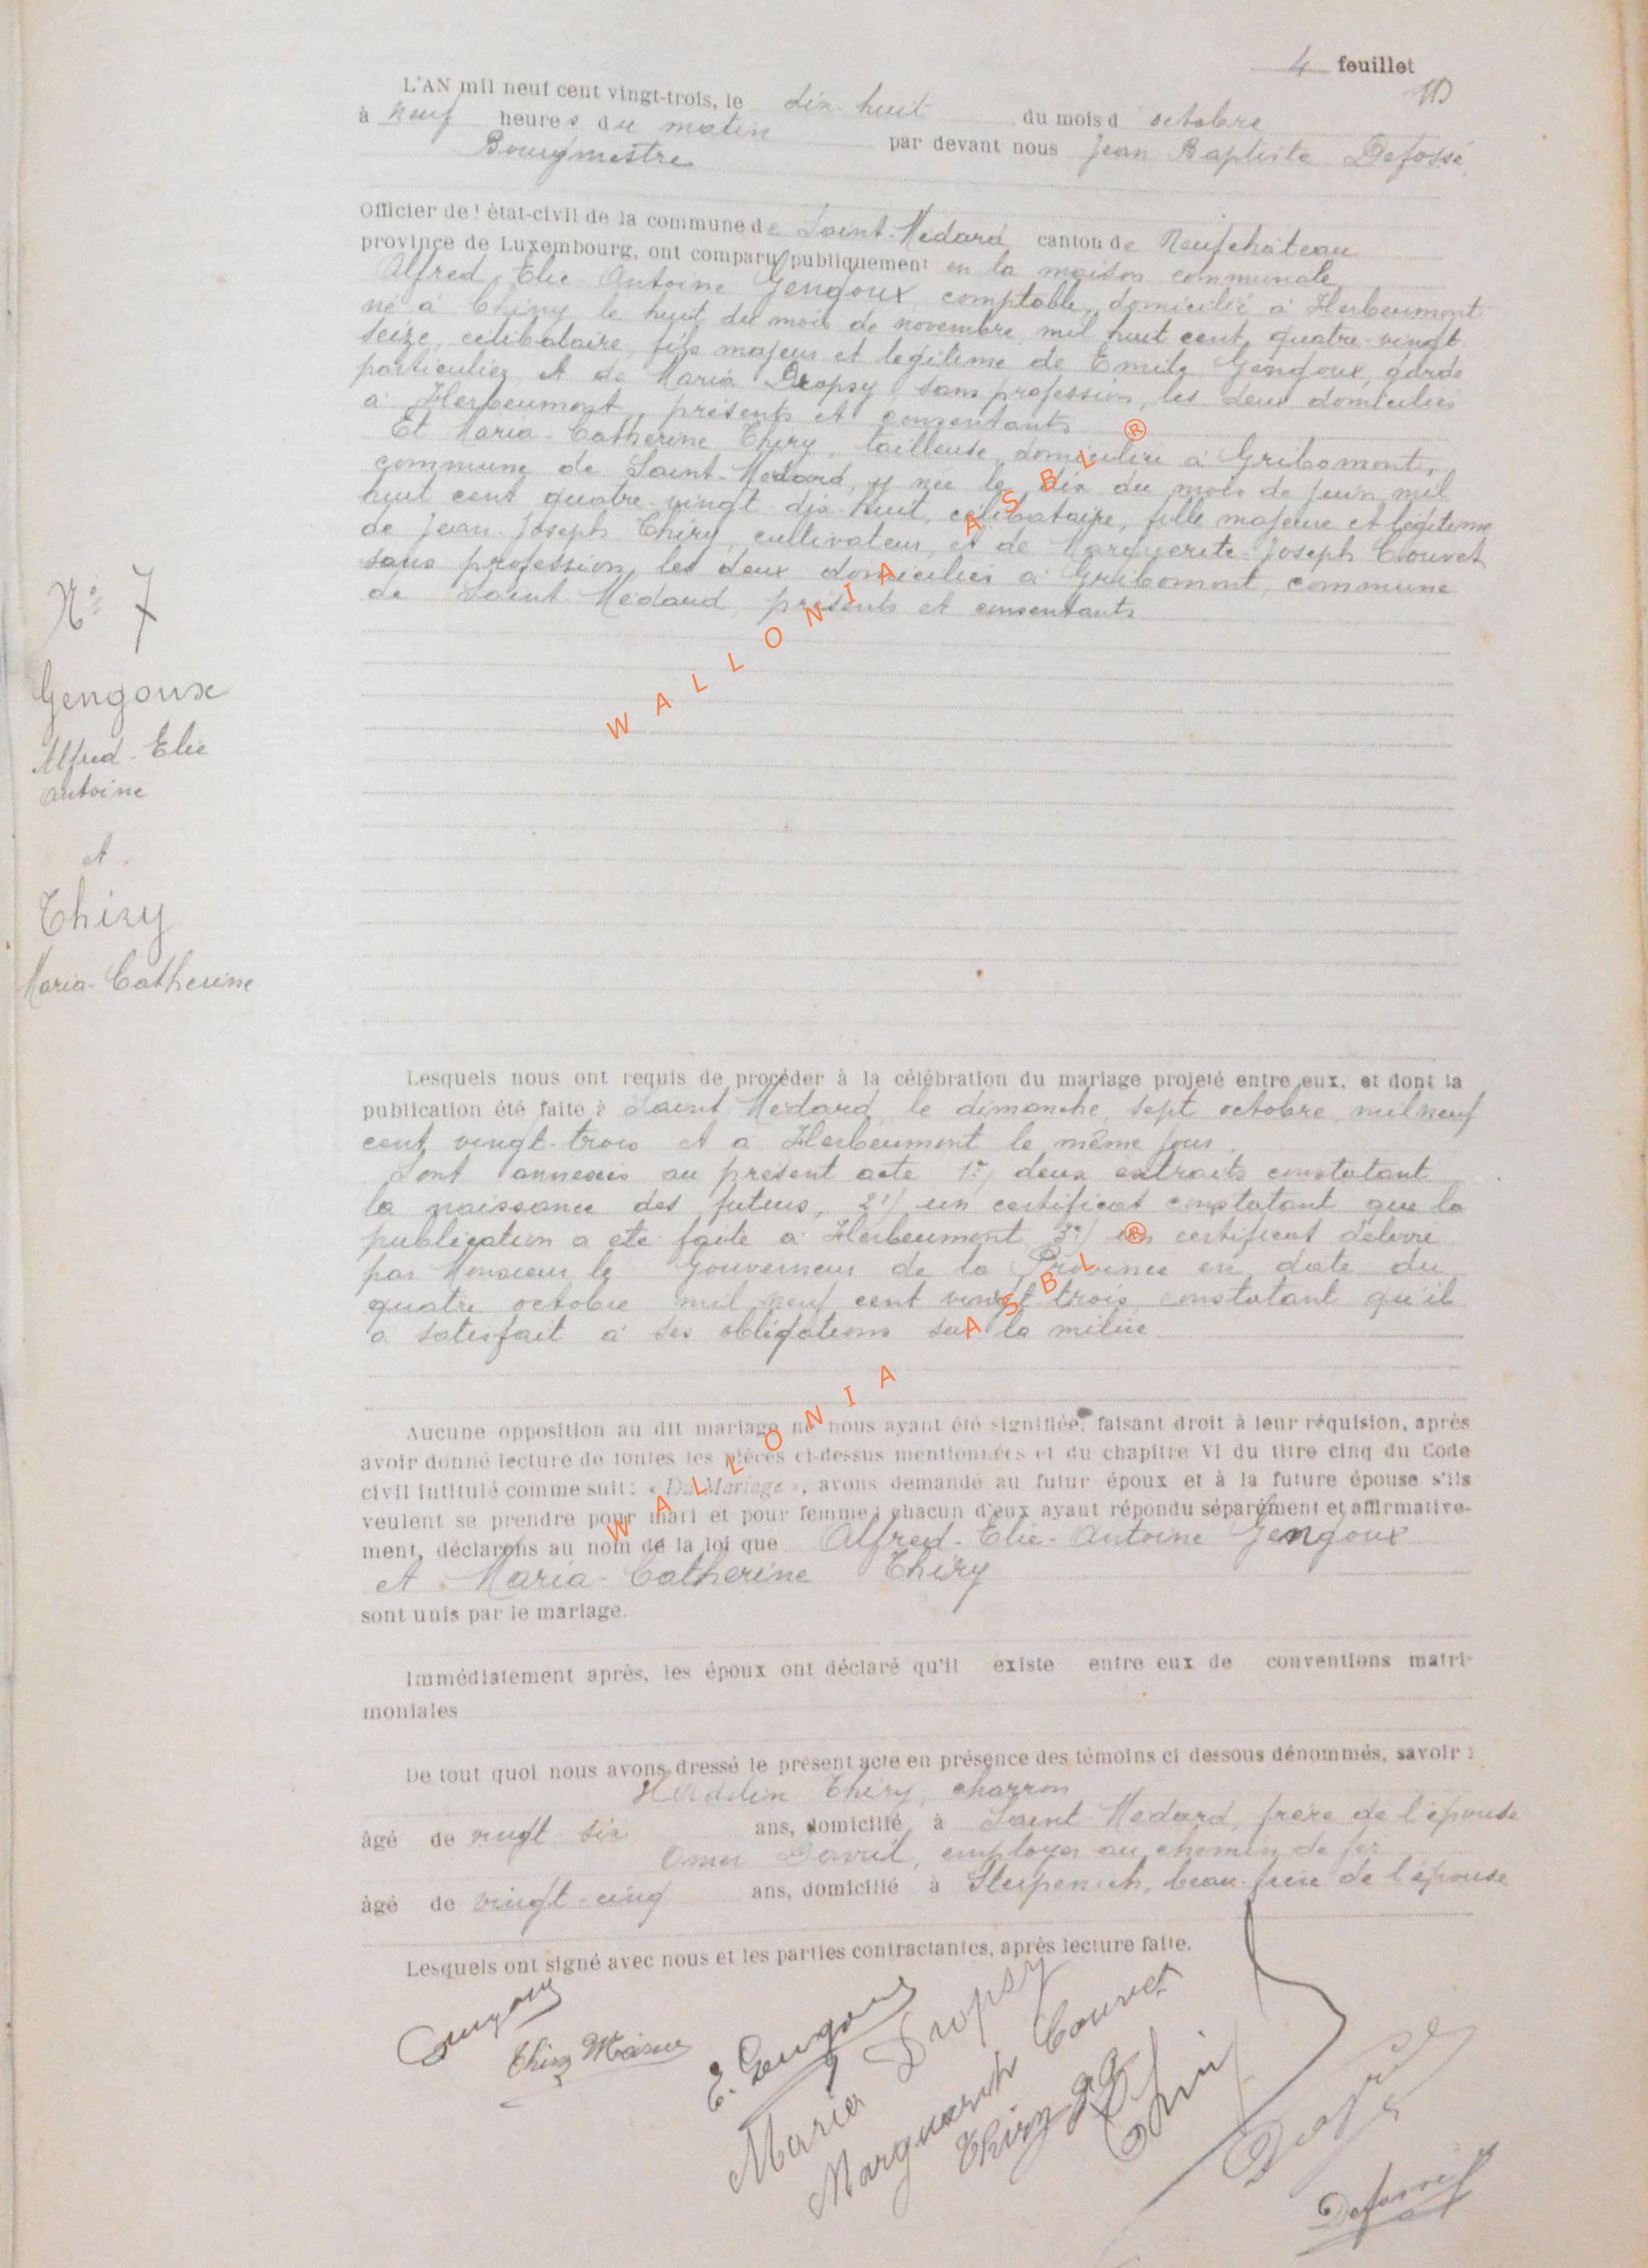 4 feuillet
L'AN mil neuf cent vingt-trois, le dix-huit du mois d octobre
à neuf heures du matin par devant nous Jean Baptiste Defossé,
Bourgmestre
Officier de l'état-civil de la commune de Saint-Médard, canton de Neufchâteau
province de Luxembourg, ont comparu publiquement en la maison communale
Alfred-Elie-Antoine Gengoux, comptable, domicilié à Herbeumont
né à Chiny le huit du mois de novembre mil huit cent quatre-vingt
seize, célibataire, fils majeur et légitime de Emile Gengoux, garde
particulier et de Maria Dropsy, sans profession, les deux domiciliés
à Herbeumont, présents et consentants
Et Maria-Catherine Thiry, tailleuse, domiciliée à Gribomont,
commune de Saint-Médard, y née le dix du mois de juin mil
huit cent quatre-vingt dix-huit, célibataire, fille majeure et légitime
de Jean-Joseph Thiry, cultivateur, et de Marguerite-Joseph Couvet
sans profession, les deux domiciliés à Gribomont, commune
de Saint-Médard, présents et consentants
N° 7
Gengoux
Alfred-Elie
Antoine
et
Thiry
Maria-Catherine
Lesquels nous ont requis de procéder à la célébration du mariage projeté entre eux, et dont la
publication été faite à Saint-Médard, le dimanche sept octobre, mil neuf
cent vingt-trois et à Herbeumont le même jour.
Sont annexés au présent acte 1°/ deux extraits constatant
la naissance des futurs, 2°/ un certificat constatant que la
publication a été faite à Herbeumont 3°/ un certificat délivré
par Monsieur le Gouverneur de la Province en date du
quatre octobre mil neuf cent vingt trois, constatant qu'il
a satisfait à ses obligations sur la milice
Aucune opposition au dit mariage ne nous ayant été signifiée, faisant droit à leur réquision, après
avoir donné lecture de toutes les pièces ci-dessus mentionnées et du chapitre VI du titre cinq du Code
civil intitulé comme suit : « Du Mariage », avons demandé au futur époux et à la future épouse s'ils
veulent se prendre pour mari et pour femme ; chacun d'eux ayant répondu séparément et affirmative-
ment, déclarons au nom de la loi que Alfred-Elie-Antoine Gengoux
et Maria-Catherine Thiry
sont unis par le mariage.
Immédiatement après, les époux ont déclaré qu'il existe entre eux de conventions matri-
moniales
De tout quoi nous avons dressé le présent acte en présence des témoins ci dessous dénommés, savoir :
Thiry, charron
âgé de vingt six ans, domicilié à Saint-Médard, frère de l'épouse
Omer employer au chemin de fer
âgé de vingt-cinq ans, domicilié à Sterpenich, beau-frère de l'épouse
Lesquels ont signé avec nous et les parties contractantes, après lecture faite.
Gengoux
Thiry Maria
E. Gengoux
Maria Dropsy
Marguerite Couvet
Thiry JJ
Thiry
WALLONIA ASBL ®
WALLONIA ASBL ®